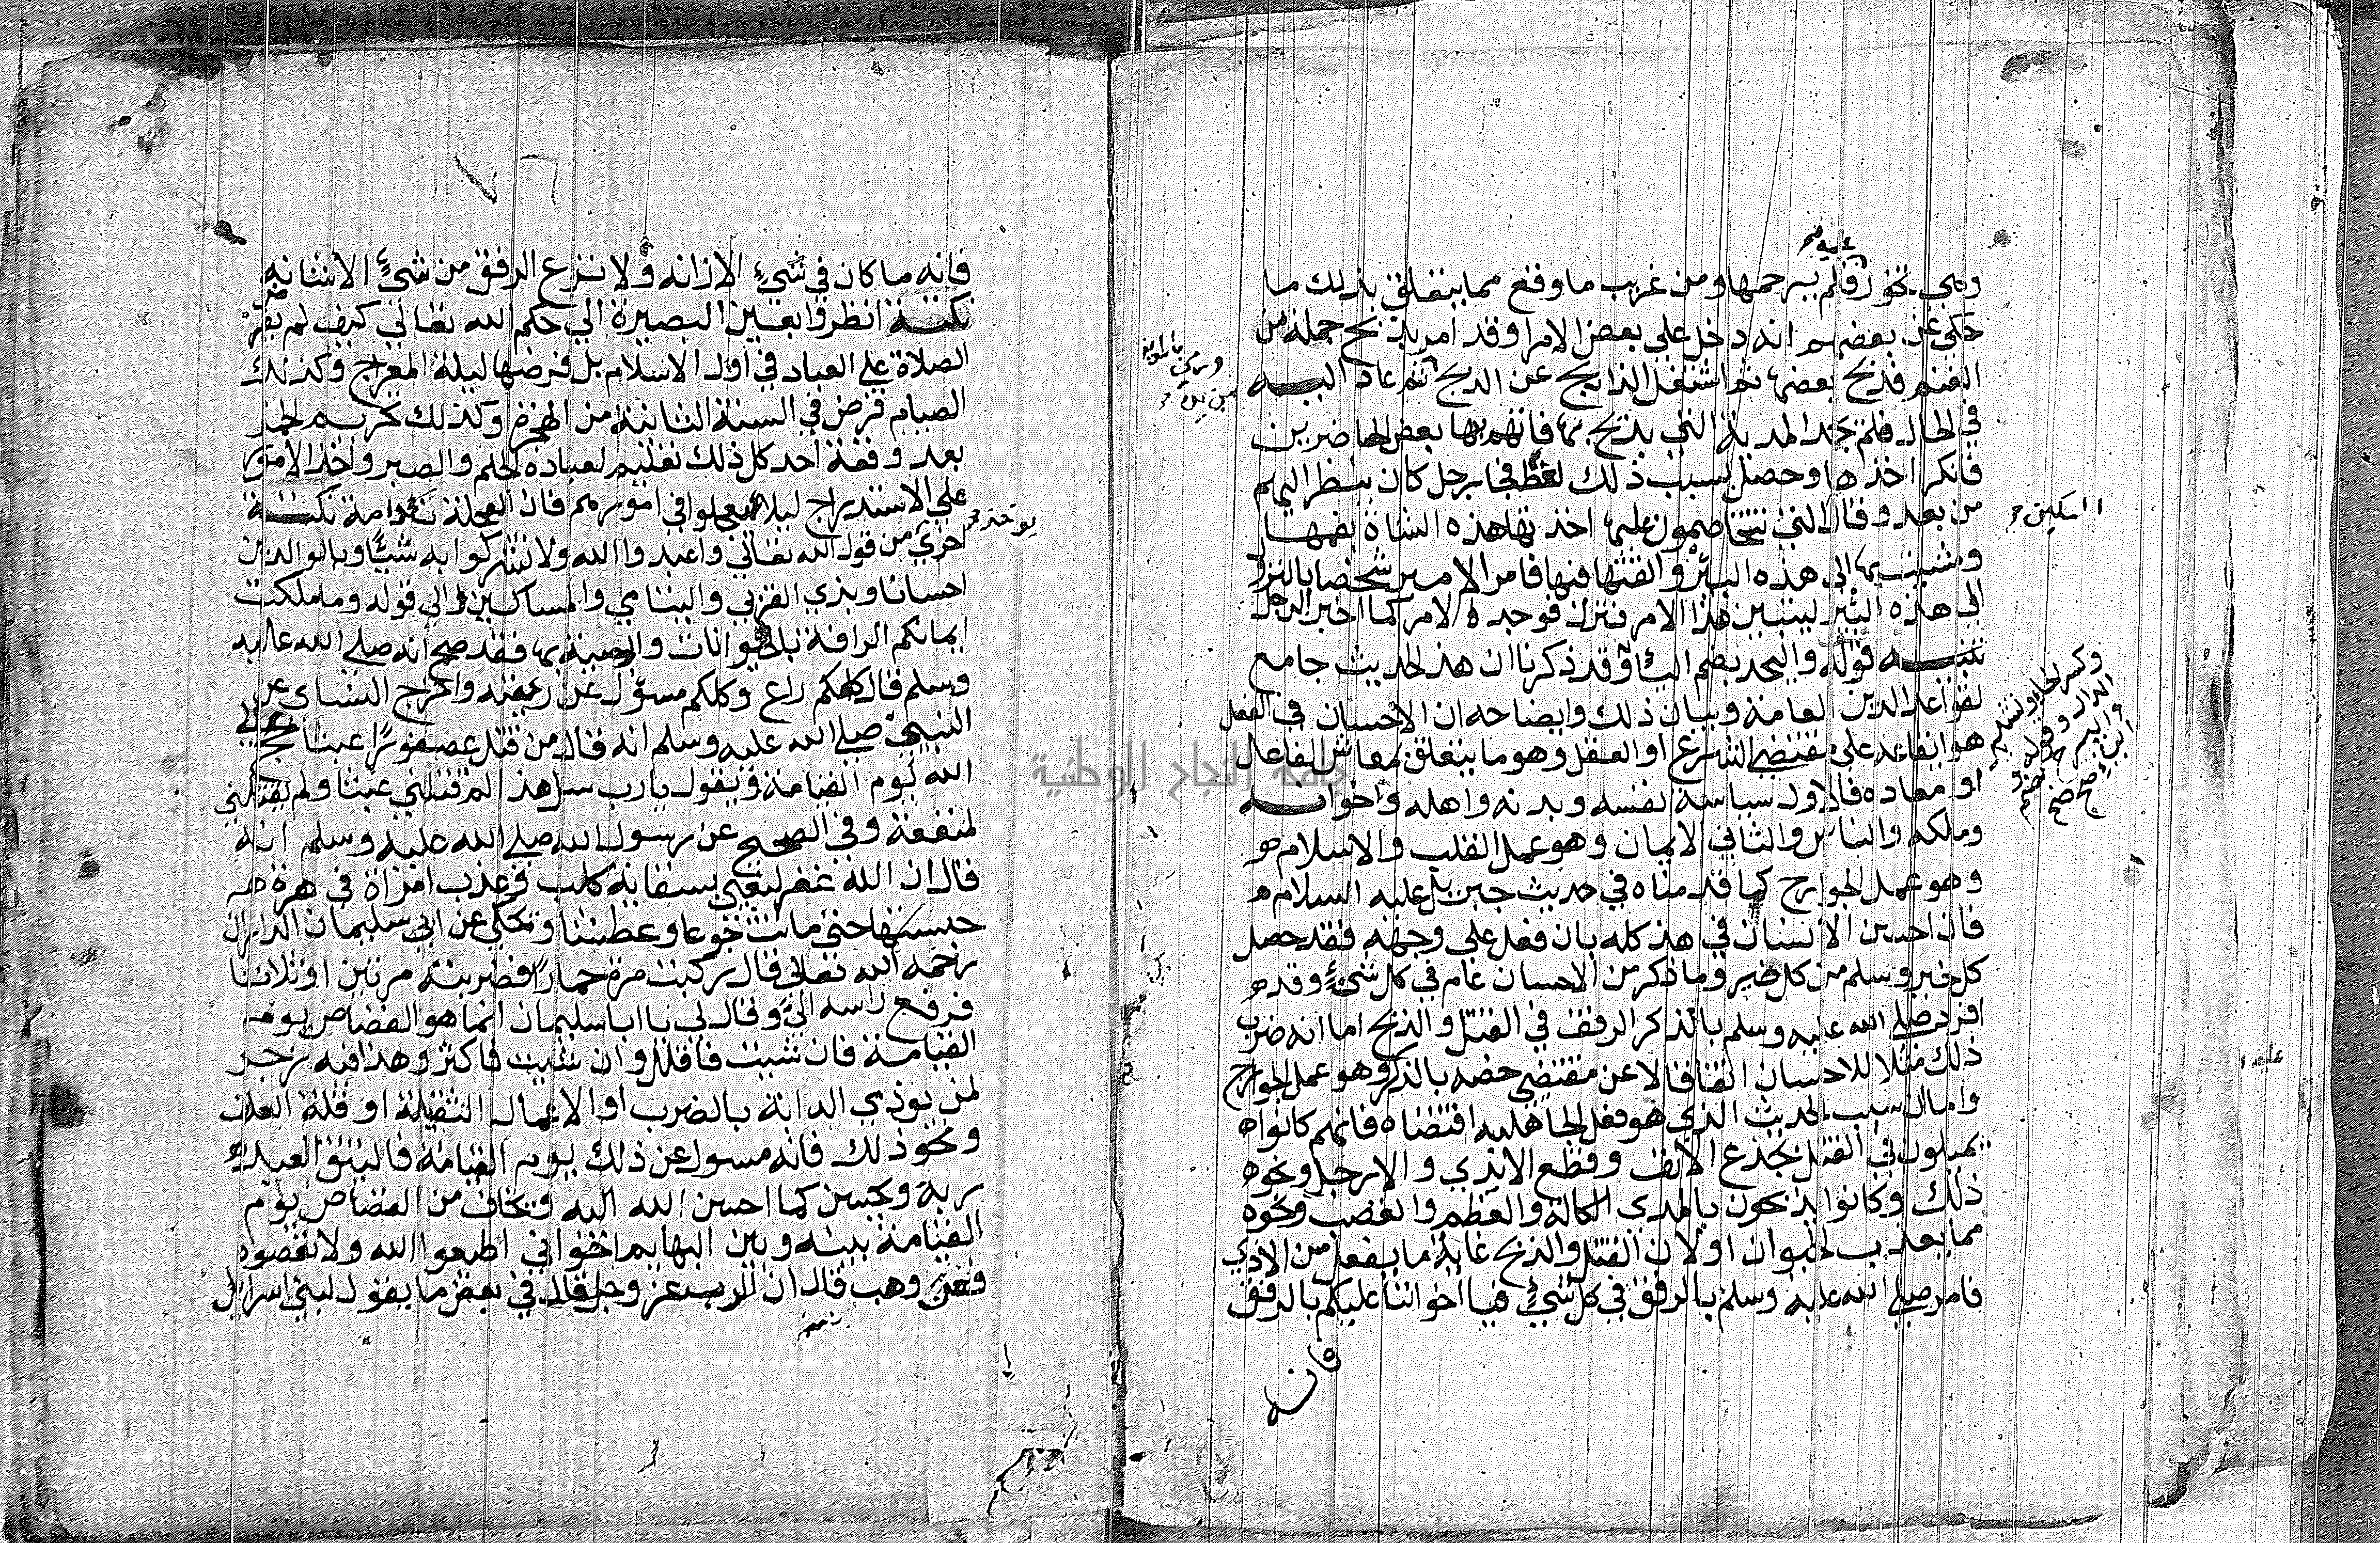 عليه صح
وهي تخور فلم يرحمها ومن غريب ما وقع مما يتعلق بذلك ما
حكي عن بعضهم انه دخل على بعض الامرا وقد امر بذبح جملة من
الغنم فذبح بعضها ثم اشتغل الذابح عن الذبح ثم عاد اليه
في الحال فلم يجد المدية التي يذبح بها فاتهم بها بعض الحاضرين
فانكر اخذها وحصل بسبب ذلك لغط فجا رجل كان ينظر اليهم
من بعد وقال التي تتخاصمون عليها اخذتها هذه الشاة بفمها
ومشيت بها الى هذه البئر والقتها فيها فامر الامير شخصا بالنزول
الى هذه البئر ليتبين هذا الامر فنزل فوجده الامر كما اخبر الرجل
تنبيه قوله واليحد بضم اليا وقد ذكرنا ان هذ الحديث جامع
لقواعد الدين العامة وبيان ذلك وايضاحه ان الاحسان في الفعل
هو ايقاعه على مقتضى الشرع او العقل وهو ما يتعلق بمعاش الفاعل
او معاده فالاول سياسة نفسه وبدنه واهله واخوانه
وملكه والناس والثاني الايمان وهو عمل القلب والاسلام
وهو عمل الجوارح كما قدمناه في حديث جبريل عليه السلام
فان احسن الانسان في هذ كله بان فعل على وجهه فقد حصل
كل خير وسلم من كل ضير وما ذكر من الاحسان عام في كل شيء وقد
افرد صلى الله عليه وسلم بالذكر الرفق في القتل والذبح اما انه ضرب
ذلك مثلا للاحسان اتفاقا لا عن مقتضى خصه بالذكر وهو عمل الجوارح
واما ان سبب الحديث الذي هو فعل الجاهلية اقتضاه فانهم كانوا
يمثلون في القتل بجذع الانف وقطع الايدي والارجل ونحوه
ذلك وكانوا يذبحون بالمدى الكالة والعظم والقصب ونحوه
مما يعذب الحيوان او لان القتل والذبح غاية ما يفعل من الاذى
فامر صلى الله عليه وسلم بالرفق في كل شيء فيا اخواننا عليكم بالرفق
فانه
السكين
وكسر الحاء وتشديد
الدال
٧٦
فانه ما كان في شيء الا زانه ولا نزع الرفق من شيء الا شانه
نكتة انظروا بعين البصيرة الي حكم الله تعالي كيف لم يفرض
الصلاة علي العباد في اول الاسلام بل فرضها ليلة المعراج وكذلك
الصيام فرض في السنة الثانية من الهجرة وكذلك تحريم الخمر
بعد وقعة احد كل ذلك تعليم لعباده الحلم والصبر واخذ الامور
علي الاستدراج ليلا يعجلوا في امورهم فان العجلة ندامة نكتة
يوخذ
اخري من قول الله تعالي واعبدوا الله ولا تشركوا به شيئا وبالوالدين
احسانا وبذي القربي واليتامي والمساكين الى قوله وما ملكت
ايمانكم الرافة بالحيوانات والوصية بها فقد صح انه صلي الله عليه
وسلم قال كلكم راع وكلكم مسؤل عن رعيته واخرج النساي عن
النبي صلي الله عليه وسلم انه قال من قتل عصفورا عبثا عج الي
الله يوم القيامة ويقول يارب سل هذ الم قتلني عبثا ولم يقتلني
لمنفعة وفي الصحيح عن رسول الله صلي الله عليه وسلم انه
قال ان الله غفر لبغي بسقاية كلب وعذب امراة في هرة
حبستها حتي ماتت جوعا وعطشا وحكي عن ابي سليمان الداراني
رحمه الله تعالى قال ركبت مرة حمارا فضربته مرتين او ثلاثا
فرفع راسه الي وقال لي يا ابا سليمان انما هو القصاص يوم
القيامة فان شيت فاقلل وان شيت فاكثر وهذا فيه زجر
لمن يوذي الدابة بالضرب او الاعمال الثقيلة او قلة العلف
ونحو ذلك فانه مسول عن ذلك يوم القيامة فاليتق العبد
ربه ويحسن كما احسن الله اليه ويخاف من القصاص يوم
القيامة بينه وبين البهايم اخواني اطيعوا الله ولا تعصوه
فعن وهب قال ان الرب عز وجل قال في بعض ما يقول لبني اسرايل
جامعة النجاح الوطنية